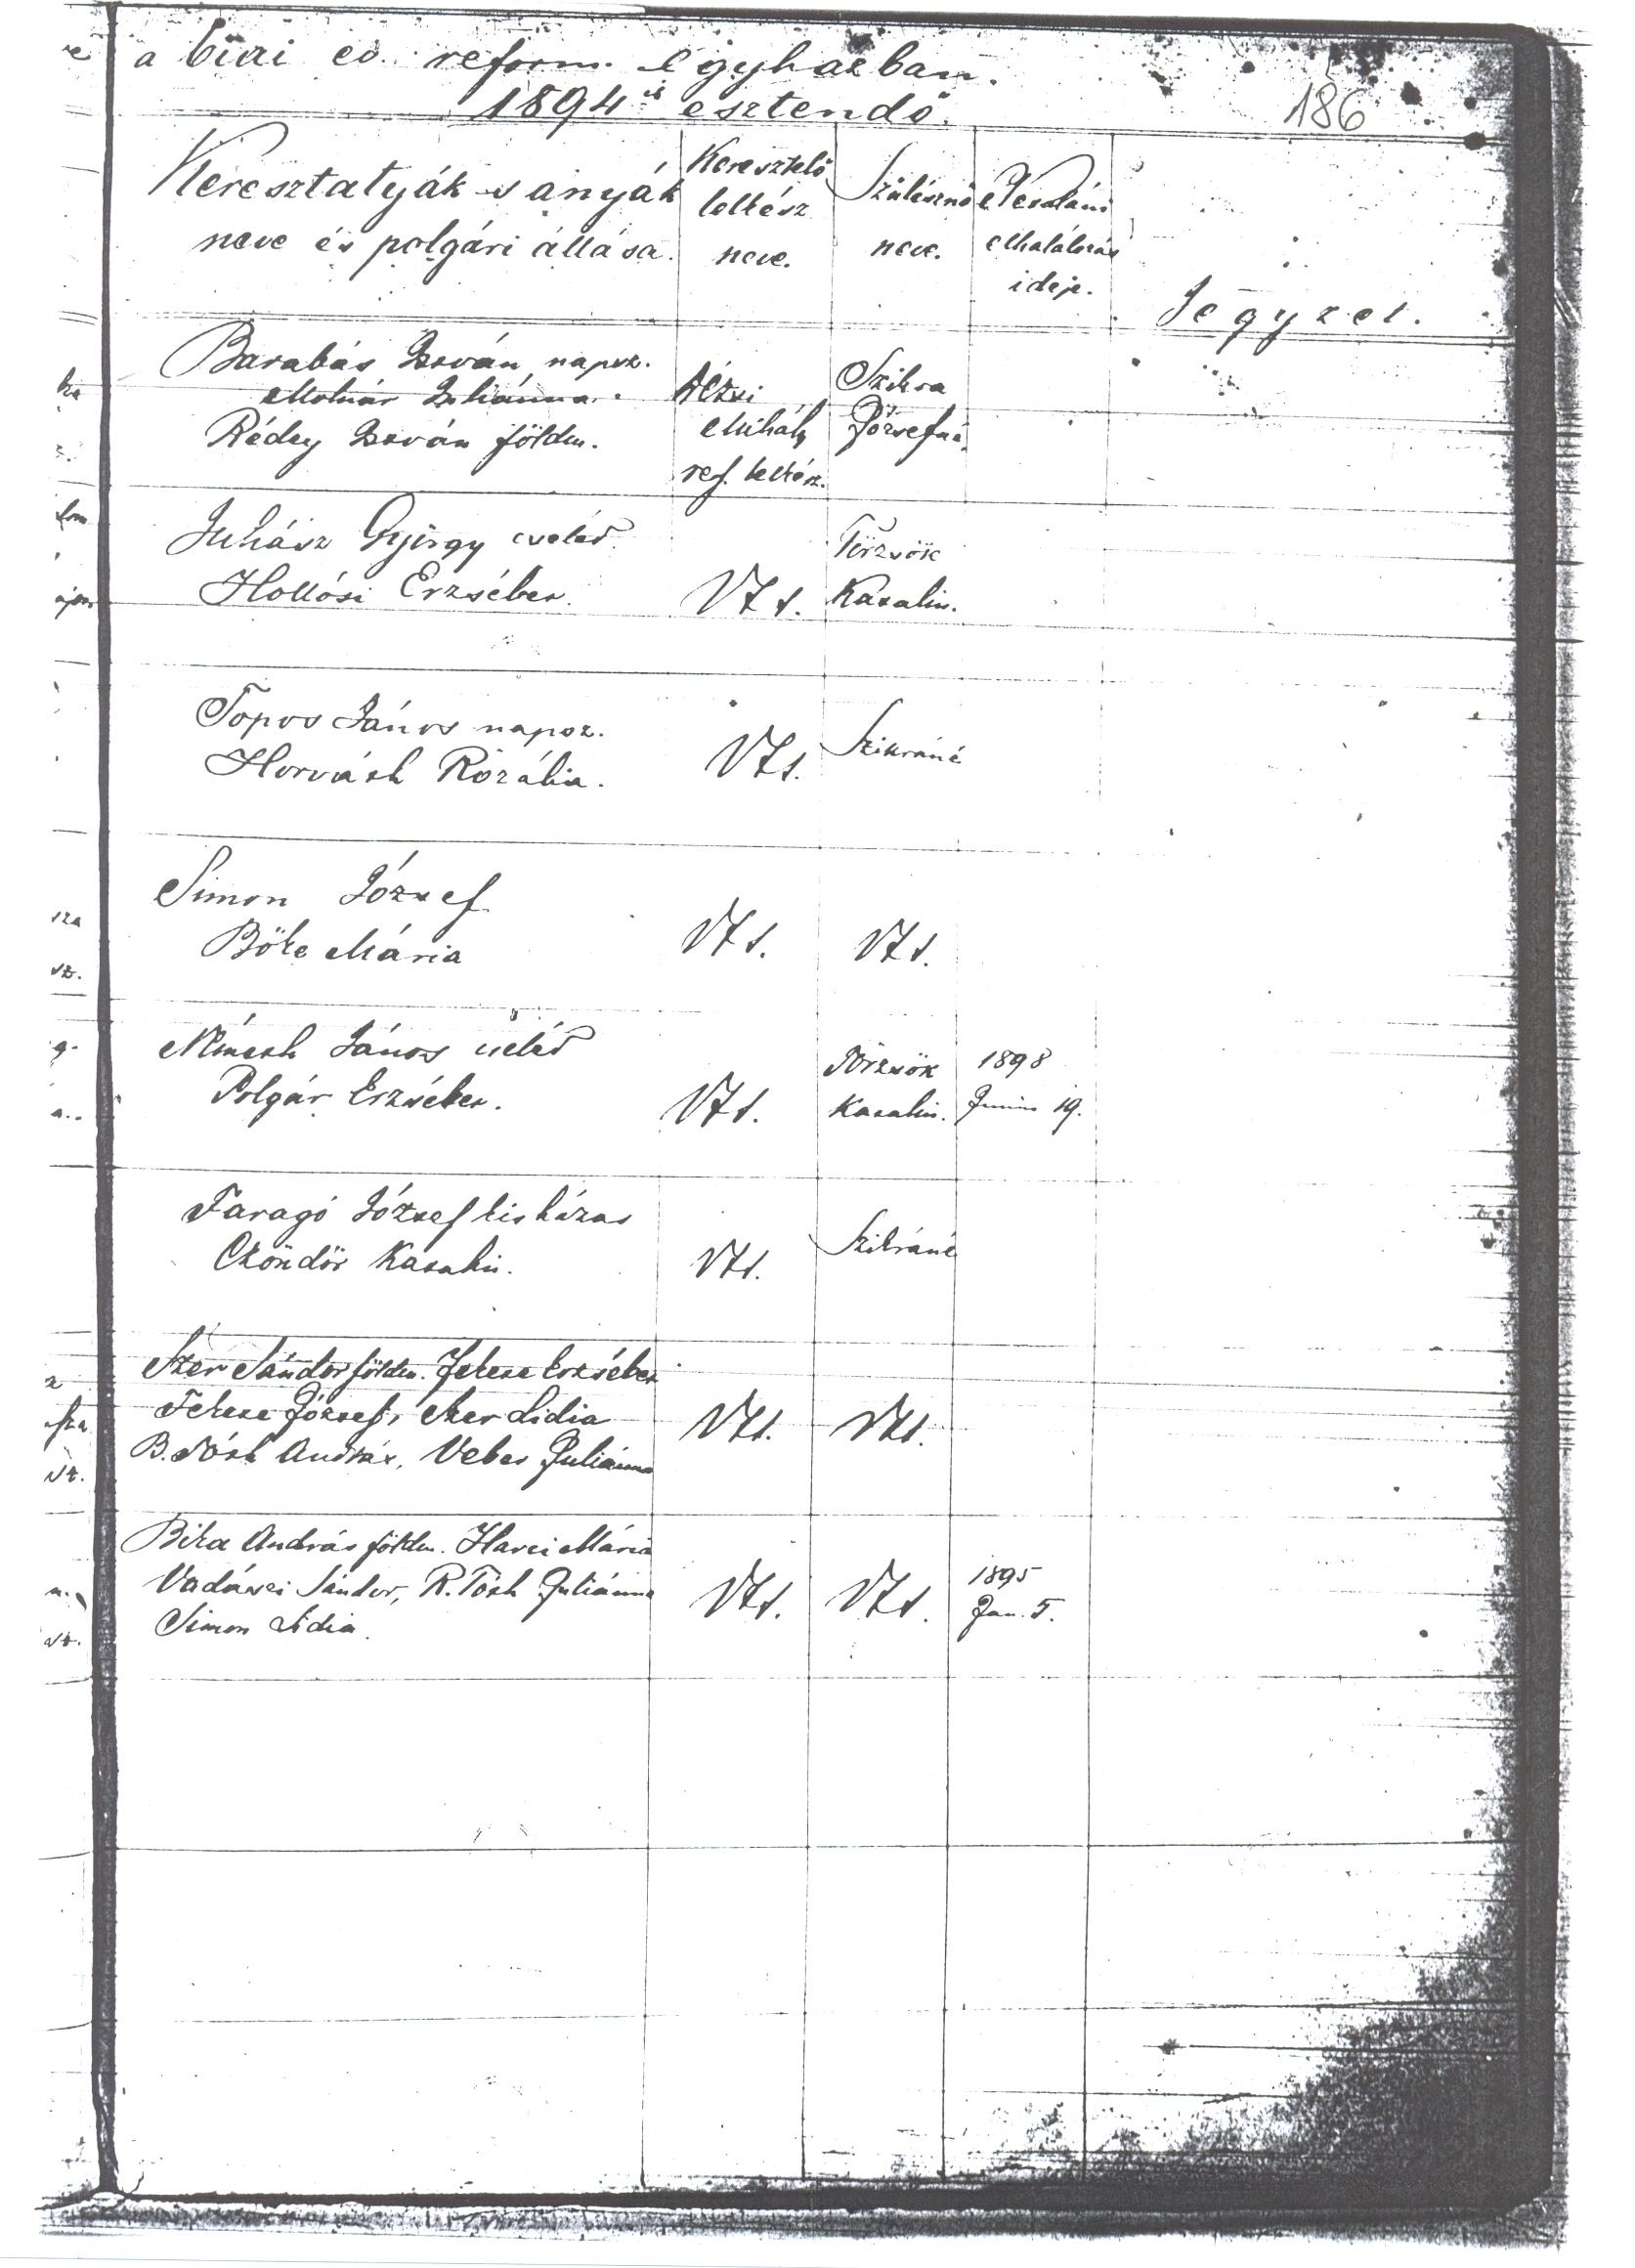 a bűűi ev. reform. egyházban.
1894ik esztendő.
186
Keresztatyák s anyák
neve és polgári állása.
Keresztelő
lelkész
neve.
Szülésznő
neve.
elhalálozás
ideje.
Jegyzet.
Barabás István, napsz.
Molnár Juliánna.
Rédey István földm.
Mihály
ref. lelkész.
Szikra
Józsefné.
Juhász György cseléd.
Hollósi Erzsébet.
Vts.
Törzsök
Katalin.
Topos János napsz.
Horváth Rozália.
Vts.
Szikráné
Simon József
Bőke Mária
Vts.
Vts.
Németh János cseléd
Polgár Erzsébet.
Vts.
Törzsök
Katalin.
1898
Junius 19.
Faragó József kisházas
Czöndör Katalin.
Vts.
Szikráné
Szer Sándor földm. Fekete Erzsébet
Fekete József, Szer Lidia
B. Tóth András, Veber Juliánna
Vts.
Vts.
Bika András földm. Harci Mária
Vadászi Sándor, R. Tóth Juliánna
Simon Lidia.
Vts.
Vts.
1895
Jan. 5.